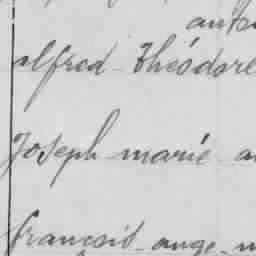 alfred Théodore
Joseph marie
françois ange